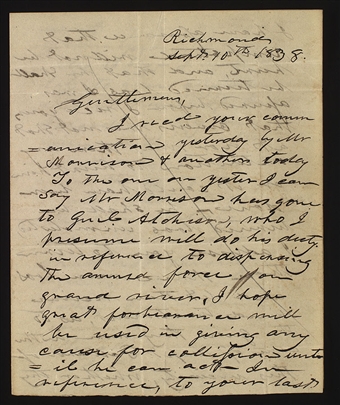 Richmond,
Sept 10th 1838.
Gentlemen,
I recd your comm
=unication yesterday by Mr
Morrison & another today
To the one on yester I can
say Mr Morrison has gone
to Genl Atchison, who I
presume will do his duty
in reference to dispersing
the armed force on
grand river, I hope
great forbearance will
be used in giving any
cause for collission unto
=il he can act In
reference, to your last